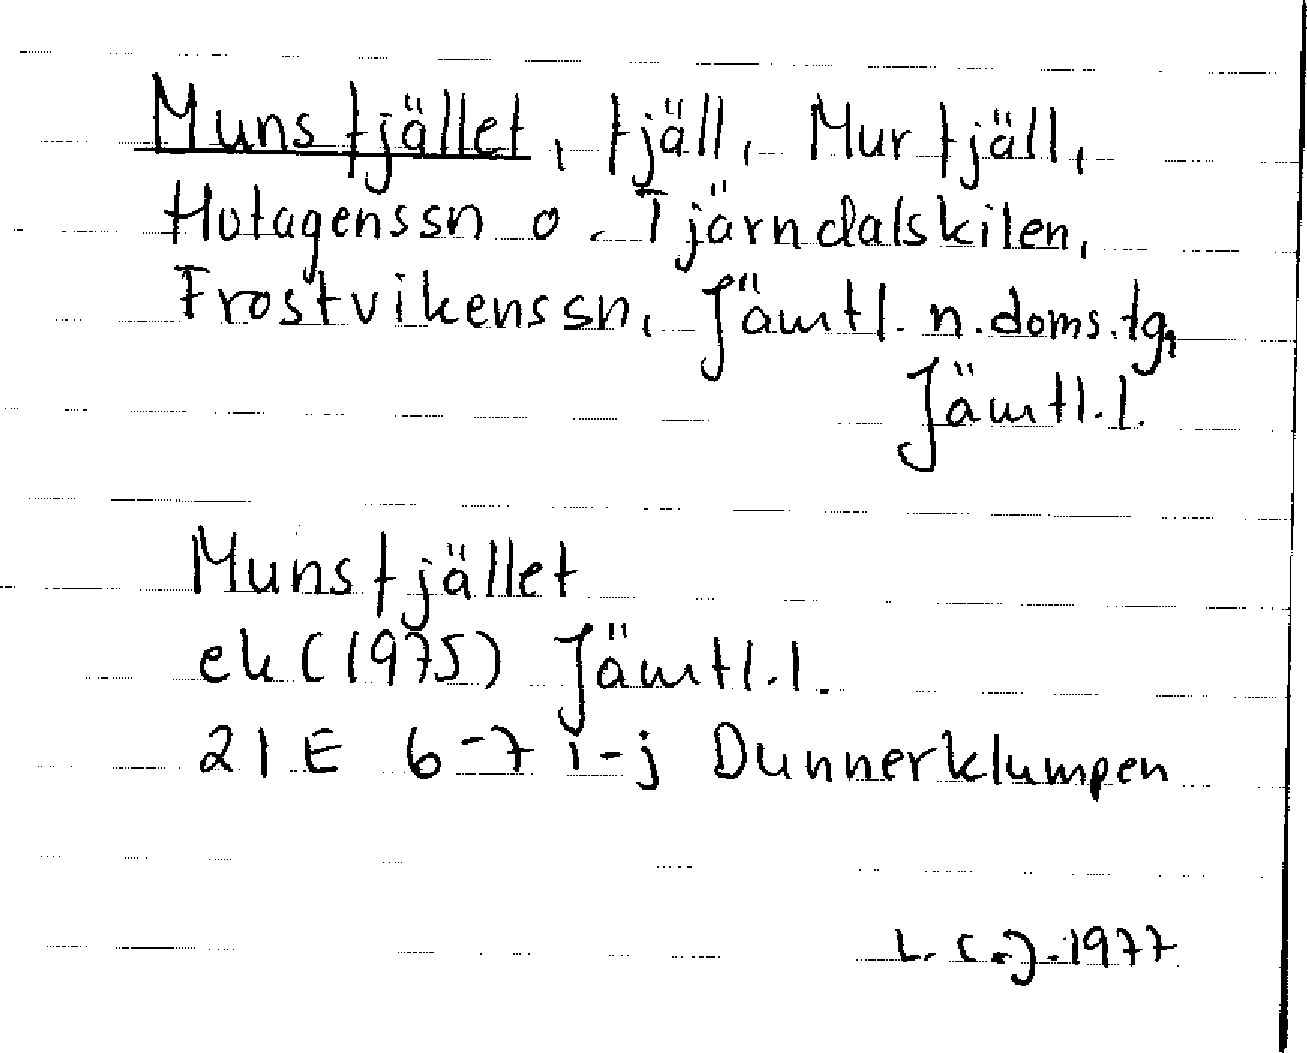 Munsfjället, fjäll, Murfjäll,
Hotagenssn o. Tjärndalskilen,
Frostvikenssn, Jämtl. n. doms. tg,
Jämtl. l.
Munsfjället
ek (1975) Jämtl. l.
21 E 6-7 i-j Dunnerklumpen
L. C-J. 1977